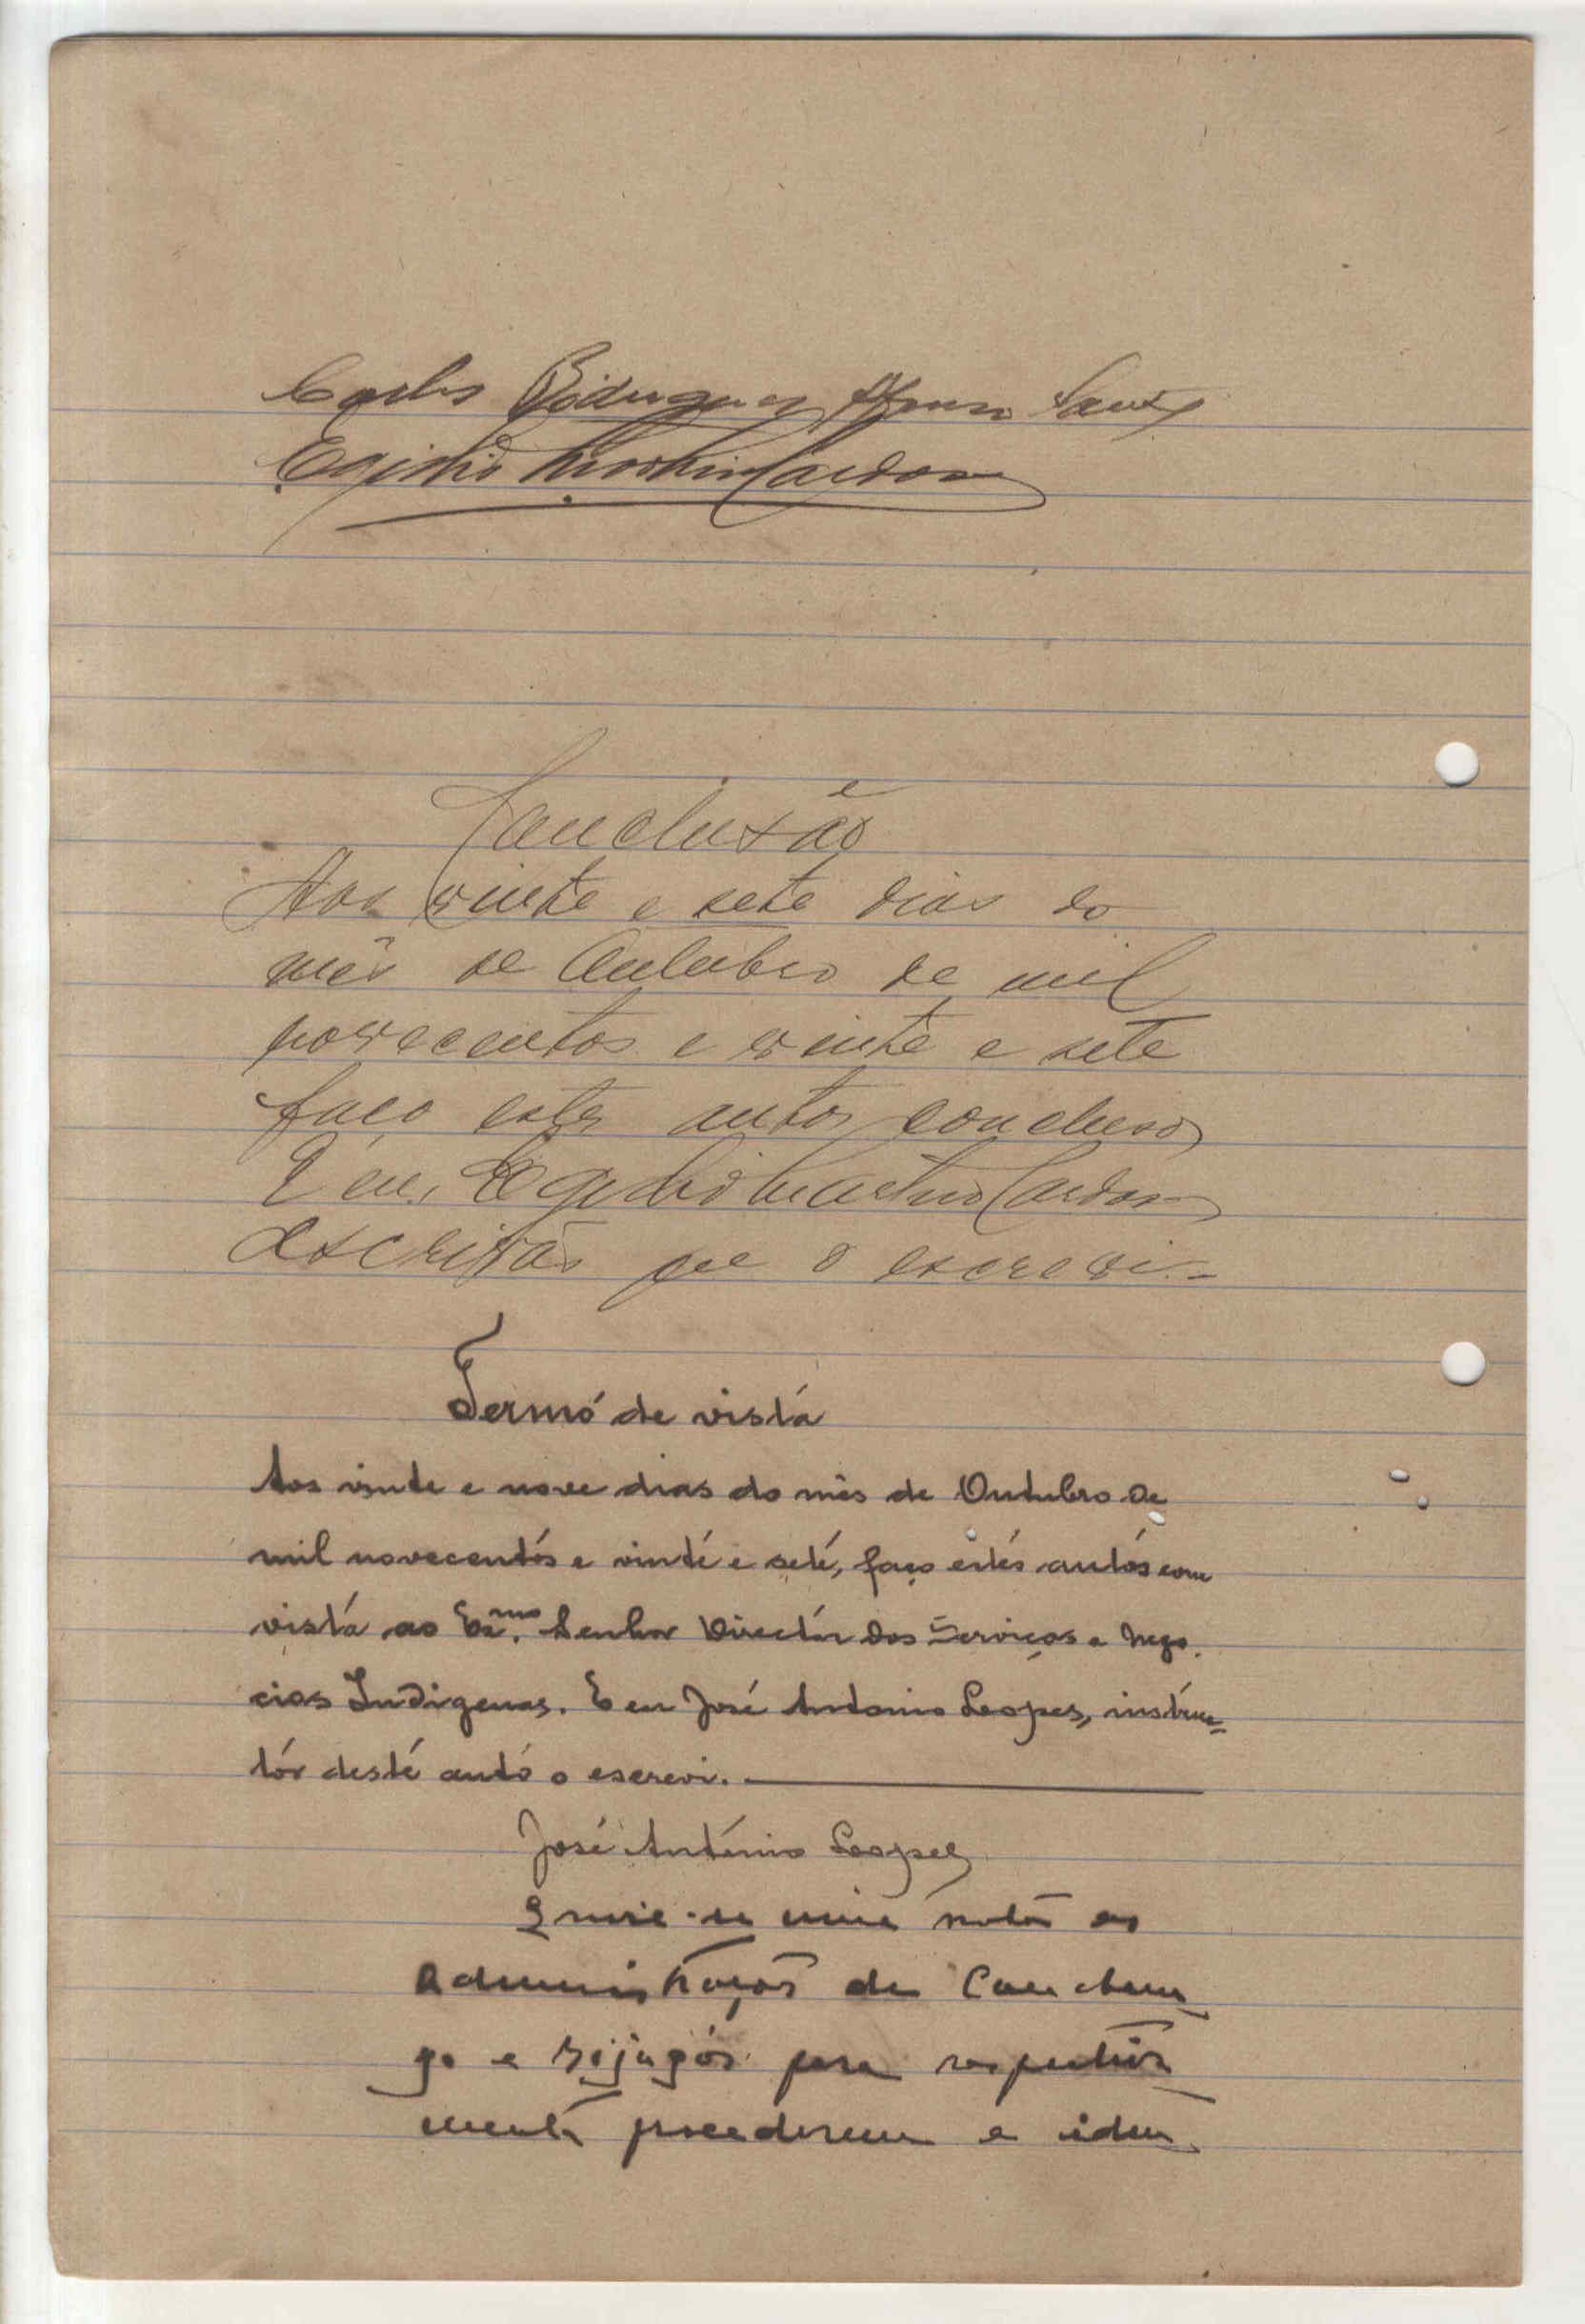 Carlos Rodrigues Afonso Santos
Egidio Martins Cardoso
Conclusão
Aos vinte e sete dias do
mês de Outubro de mil
novecentos e vinte e sete
faço estes autos conclusos
E eu, Egidio Martins Cardoso
escrivão que o escrevi.-
Termo de vista
Aos vinte e nove dias do mês de Outubro de
mil novecentos e vinte e sete, faço estes autos com
vista ao Exmo. Senhor Director dos Serviços e Nego-
cios Indigenas. E eu José Antonio Lopes, instruc-
tor deste auto o escrevi.
José António Lopes
Envie-se uma nota as
Administrações de Canchun-
go e Bijagós para respectiva-
mente procederem a iden-